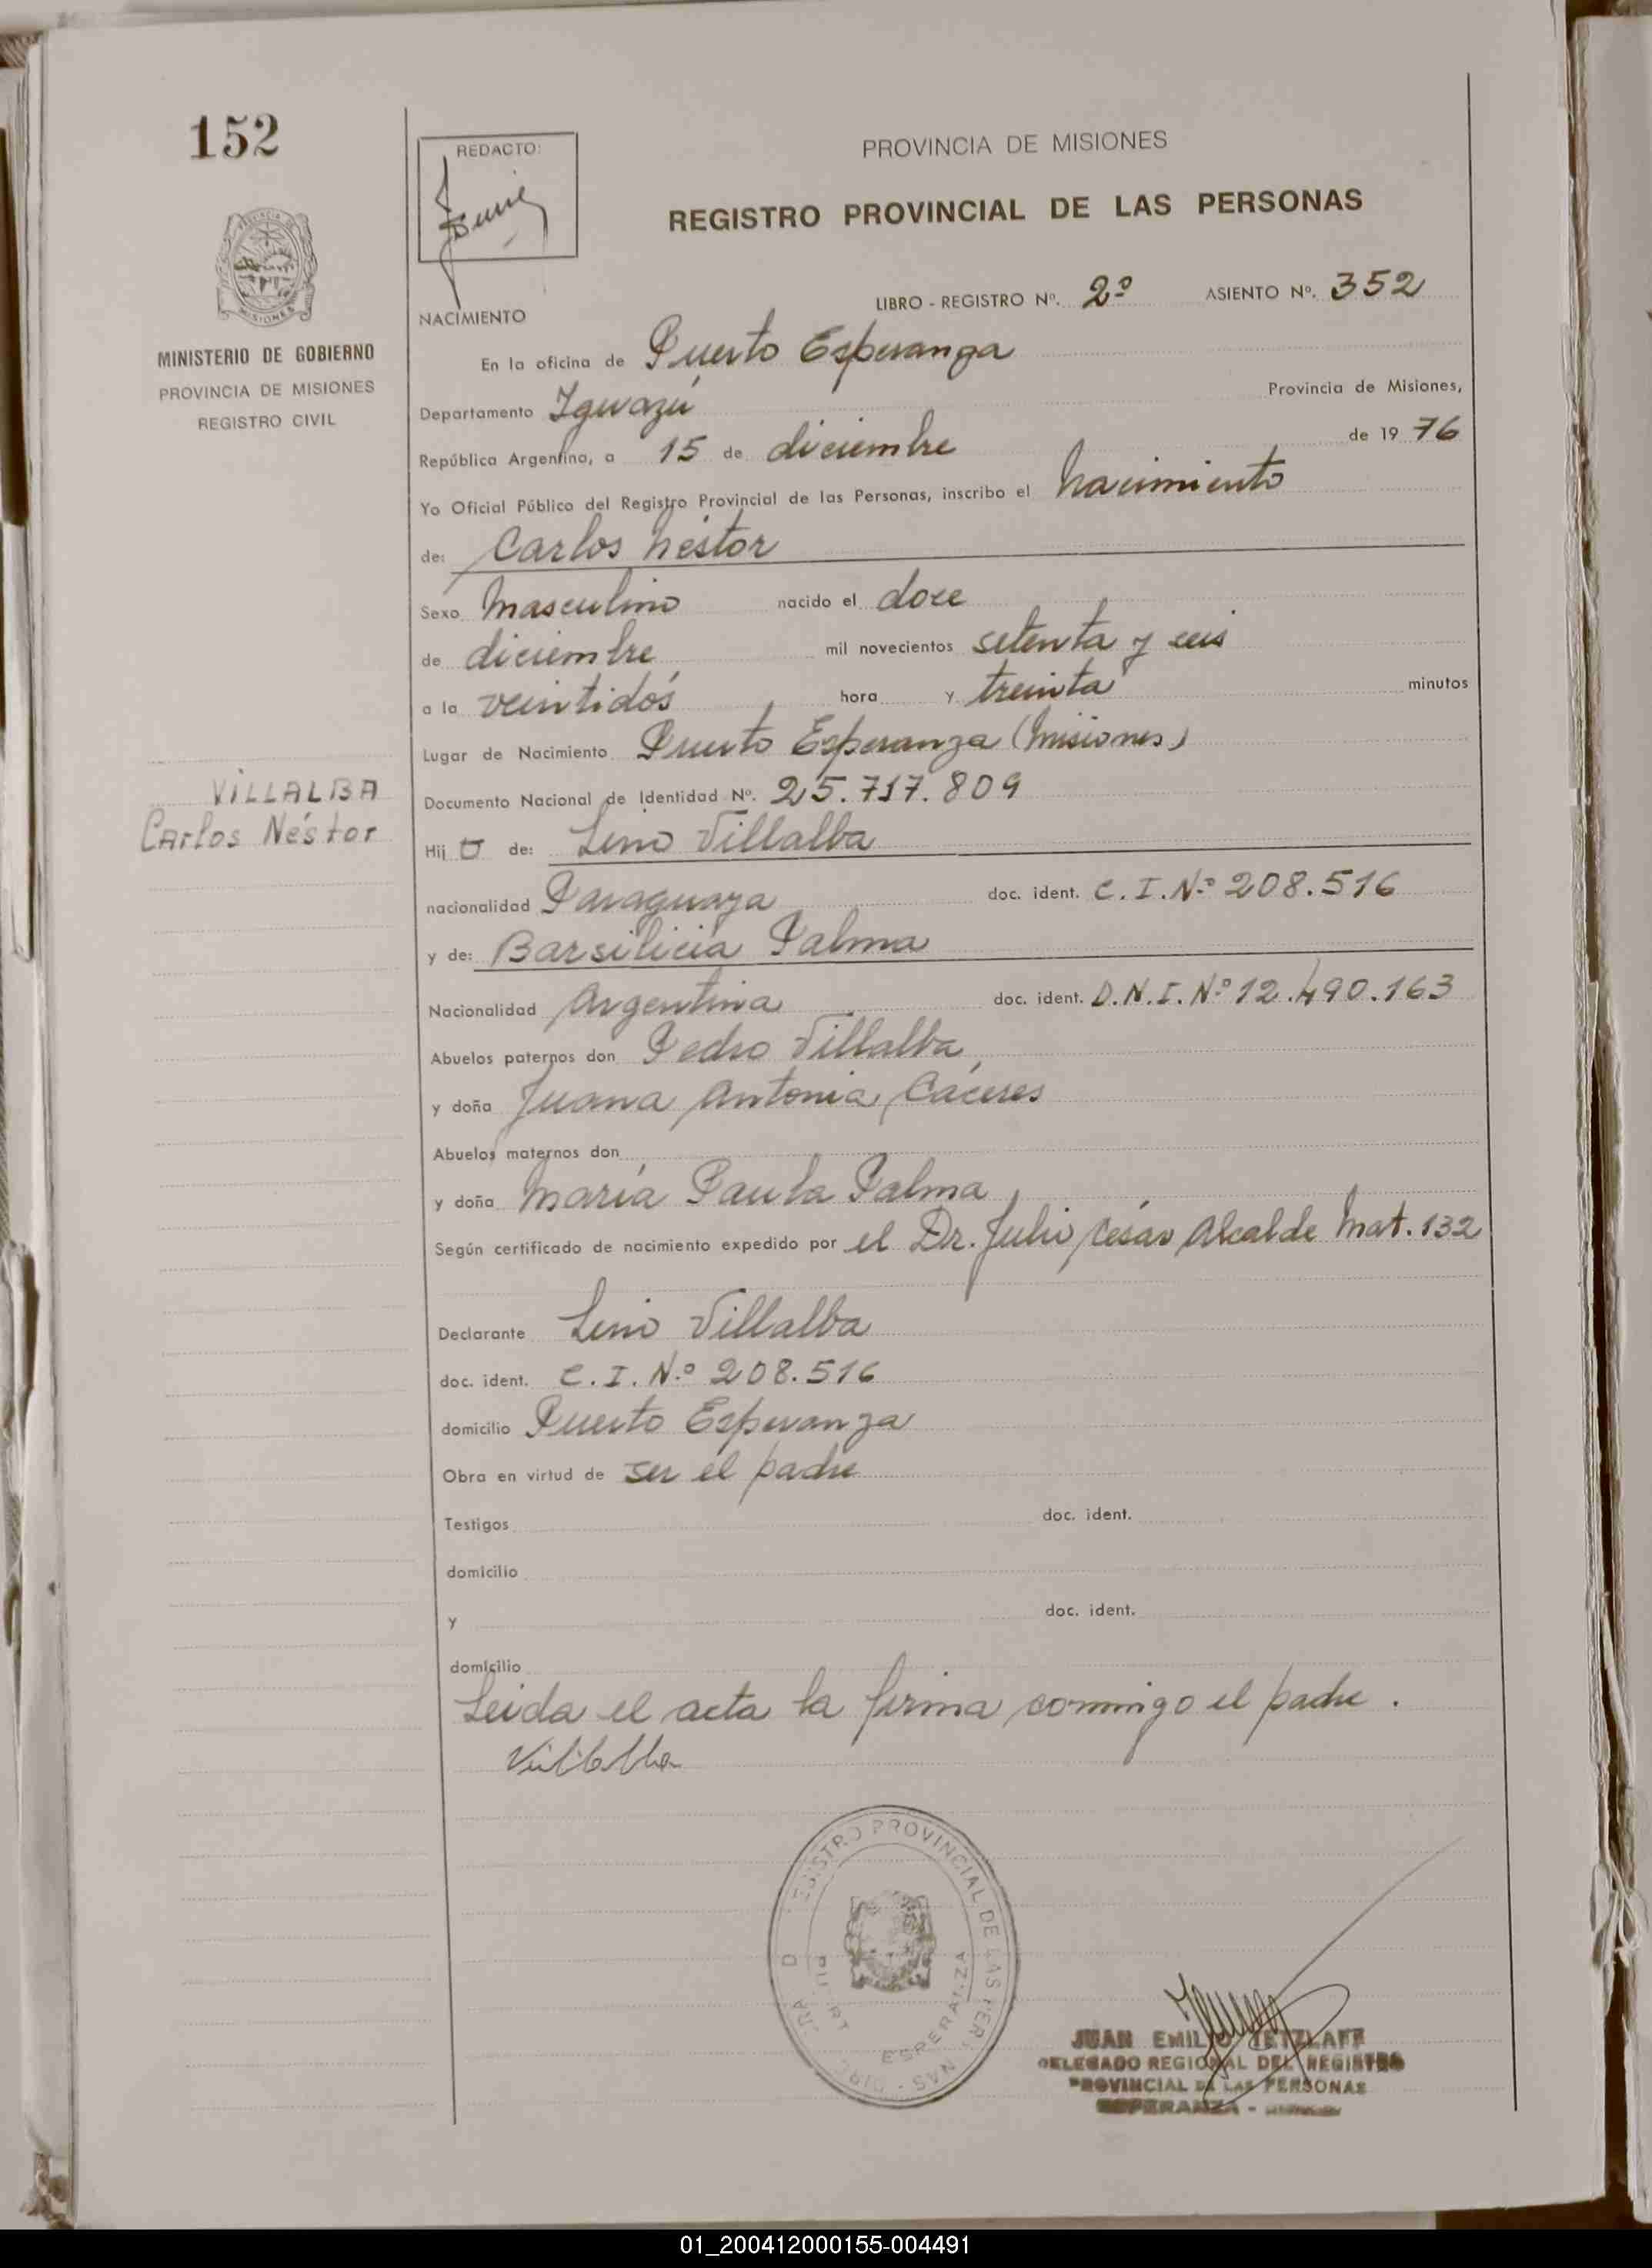 152
REDACTO:
PROVINCIA DE MISIONES
REGISTRO PROVINCIAL DE LAS PERSONAS
MISIONES
LIBRO - REGISTRO Nº. 2º ASIENTO Nº. 352
NACIMIENTO
MINISTERIO DE GOBIERNO
PROVINCIA DE MISIONES
REGISTRO CIVIL
En la oficina de Puerto Esperanza
Departamento Iguazú Provincia de Misiones,
República Argentina, a 15 de diciembre de 19 76
Yo Oficial Público del Registro Provincial de las Personas, inscribo el nacimiento
de: Carlos Néstor
Sexo masculino nacido el doce
de diciembre mil novecientos setenta y seis
a la veintidós hora y treinta minutos
Lugar de Nacimiento Puerto Esperanza (Misiones)
VILLALBA
Carlos Néstor
Documento Nacional de Identidad Nº. 25.717.809
Hij o de: Lino Villalba
nacionalidad Paraguaya doc. ident. C.I.Nº 208.516
y de: Barsilicia Palma
Nacionalidad Argentina doc. ident. D.N.I.Nº 12.490.163
Abuelos paternos don Pedro Villalba
y doña Juana Antonia Cáceres
Abuelos maternos don
y doña María Paula Palma
Según certificado de nacimiento expedido por el Dr. Julio César Alcalde Mat. 132
Declarante Lino Villalba
doc. ident. C.I.Nº 208.516
domicilio Puerto Esperanza
Obra en virtud de ser el padre
Testigos doc. ident.
domicilio
y doc. ident.
domicilio
Leida el acta la firma conmigo el padre.
Villalba
REGISTRO PROVINCIAL DE LAS PERSONAS
ESPERANZA
JUAN EMILIO RETZLAFF
DELEGADO REGIONAL DEL REGISTRO
PROVINCIAL DE LAS PERSONAS
ESPERANZA -
01_200412000155-004491